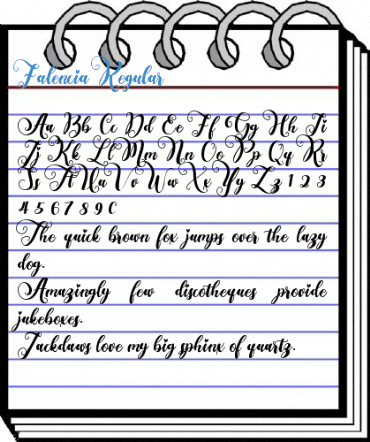 Falencia Regular
Aa Bb Cc Dd Ee Ff Gg Hh Ii
Jj Kk Ll Mm Nn Oo Pp Qq Rr
Ss Tt Uu Vv Ww Xx Yy Zz 1 2 3
4 5 6 7 8 9 0
The quick brown fox jumps over the lazy
dog.
Amazingly few discotheques provide
jukeboxes.
Jackdaws love my big sphinx of quartz.